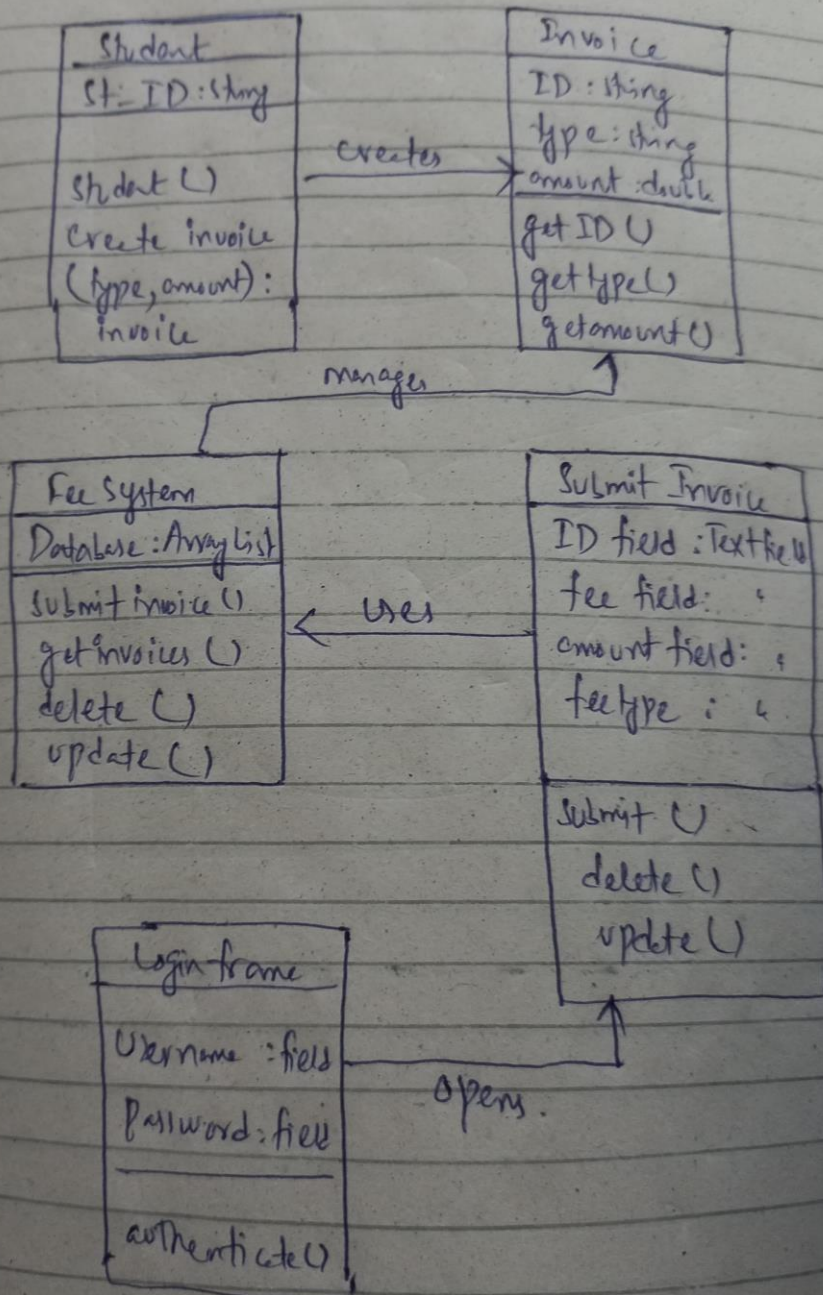 Student
St: ID: String
Student()
Create invoice
(type, amount):
invoice
creates
Invoice
ID: string
type: string
amount: double
get ID()
gettype()
getamount()
manages
Fee System
Database: ArrayList
submit invoice()
getinvoices()
delete()
update()
uses
Submit Invoice
ID field: Textfield
fee field: "
amount field: "
feetype: "
Submit()
delete()
update()
Login frame
Username: field
Password: field
authenticate()
opens.